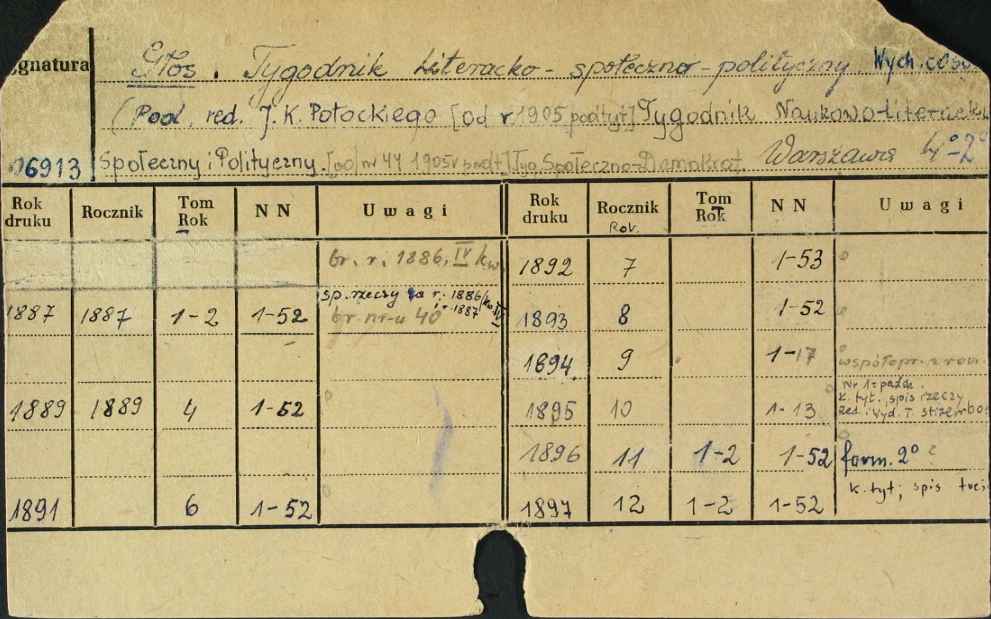 gnatura Głos. Tygodnik Literacko-społeczno-polityczny Wych. co
(Pod. red. J. K. Potockiego [od r 1905 podtyt] Tygodnik Naukowo-Literacki
06913 Społeczny i Polityczny. [od nr 44 1905r podt] Tyg. Społeczno-Demokrat. Warszawa 4º-2º
Rok druku Rocznik Tom Rok NN Uwagi Rok druku Rocznik Rok. Tom Rok NN Uwagi
br. r. 1886, IV kw 1892 7 1-53
sp. rzeczy za r. 1886/
1887 1887 1-2 1-52 br. nr-u 40 i r. 1887 1893 8 1-52
1894 9 1-17 współopr. z
Nr 1 = paźdz.
K. tyt., spis rzeczy
1889 1889 4 1-52 1895 10 1-13 Red. i wyd. T.
1896 11 1-2 1-52 form. 2º
k. tyt; spis treś
1891 6 1-52 1897 12 1-2 1-52